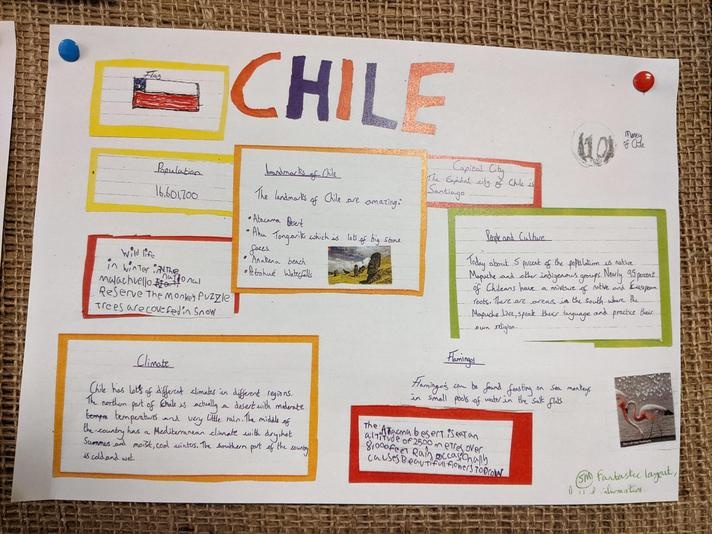 CHILE
Flag
(10)
Money
of Chile
Population
16.601.700
Landmarks of Chile
The landmarks of Chile are amazing:
• Atacama Desert
• Ahu Tongariki which is lots of big stone
faces
• Anakena beach
• Petrohue Waterfalls
Capital City
The capital city of Chile is
Santiago
Wild life
in winter in the
malachuello national
Reserve The monkey Puzzle
Trees are covered in snow
People and Culture
Today about 5 percent of the population is native
Mapuche and other indigenous groups. Nearly 95 percent
of Chileans have a mixture of native and European
roots. There are areas in the south where the
Mapuche live, speak their language and practice their
own religion.
Climate
Chile has lots of different climates in different regions.
The northern part of Chile is actually a desert with moderate
tempra temperatures and very little rain. The middle of
the country has a Mediterranean climate with dry, hot
summers and moist, cool winters. The southern part of the country
is cold and wet.
Flamingo
Flamingo's can be found feasting on sea monkeys
in small pools of water in the salt flats
The Atacama Desert is at an
altitude of 2500 metres over
8,000 feet Rain occasionally
causes beautiful flowers to grow
SM Fantastic layout,